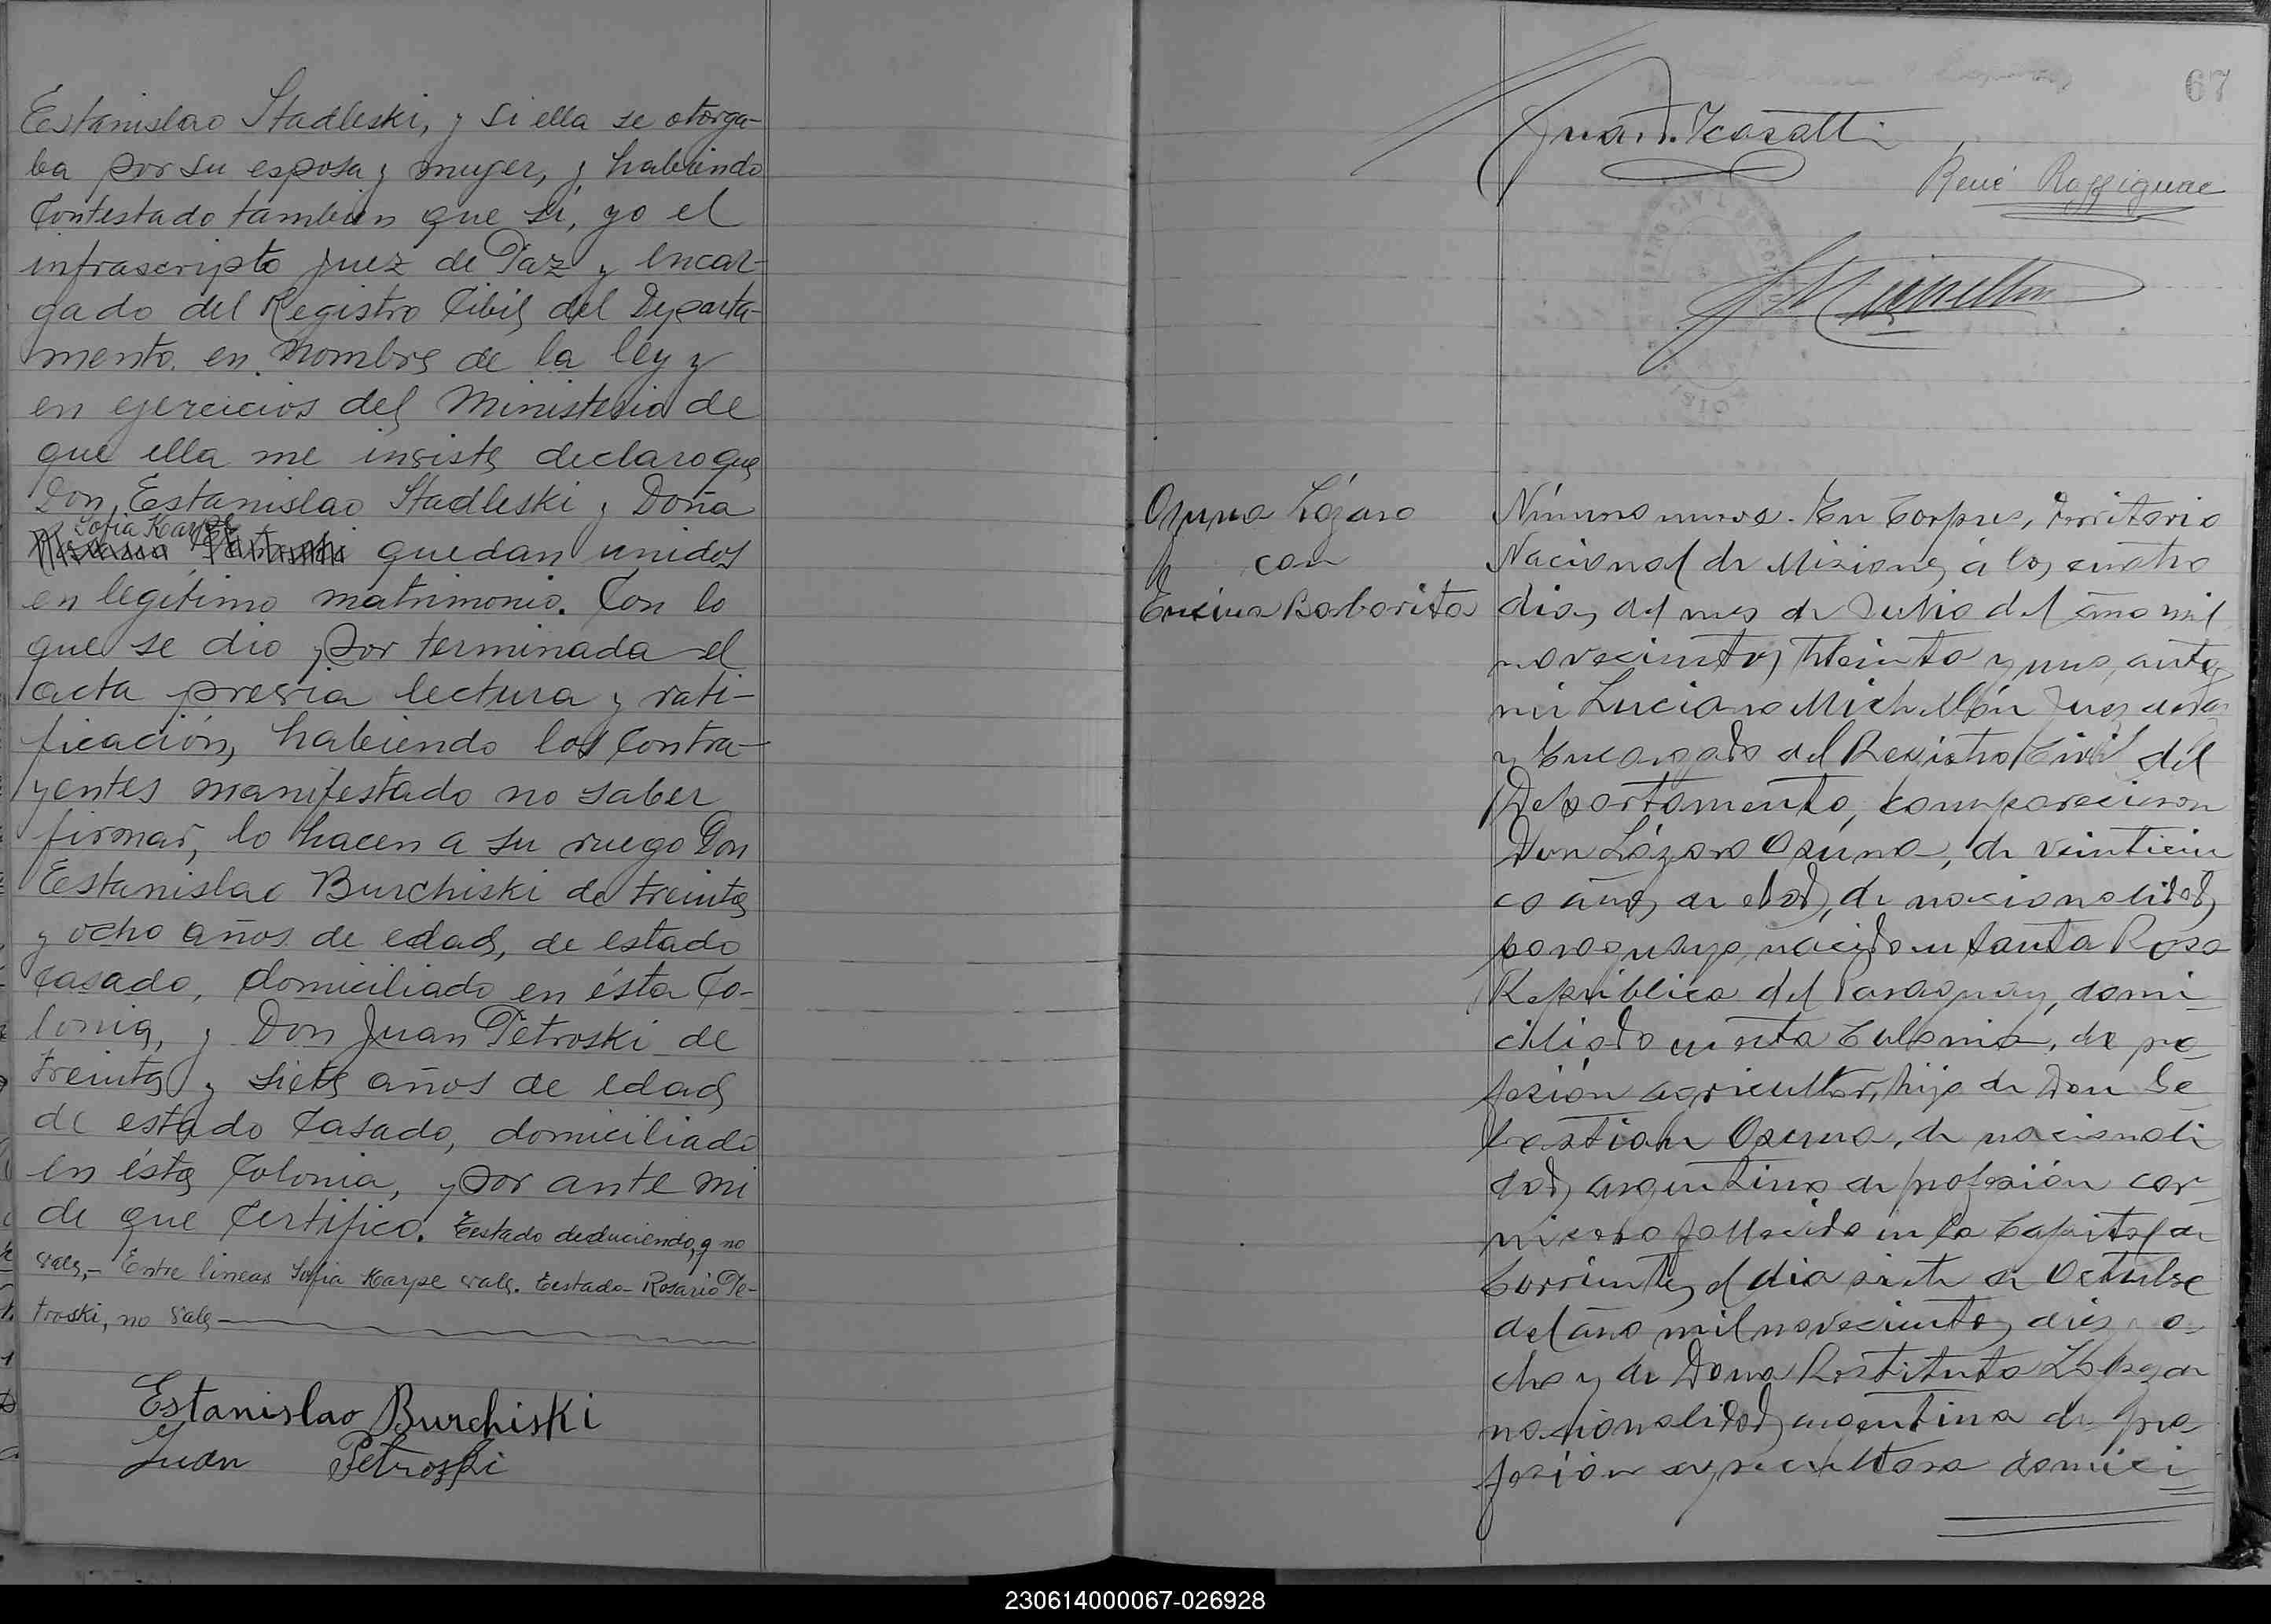 Estanislao Stadleski, y si ella se otorga-
ba por su esposa y muger, y habiendo
Contestado tambien que si, yo el
infrascripto Juez de Paz y Encar-
gado del Registro Cibil del Departa-
mento. en nombre de la ley y
en ejercicios del Ministerio de
que ella me insiste declaro que
Don, Estanislao Stadleski y Doña
Sofia Karpe
quedan unidos
en legitimo matrimonio. Con lo
que se dio por terminada el
acta previa lectura y rati-
ficación, habiendo los Contra-
yentes manifestado no saber
firmar, lo hacen a su ruego Don
Estanislao Burchiski de treinta
y ocho años de edad, de estado
Casado, domiciliado en ésta Co-
lonia, y Don Juan Petroski de
treinta y siete años de edad
de estado Casado, domiciliado
en ésta Colonia, y por ante mi
de que Certifico. Testado deduciendo, q no
vale,- Entre lineas Sofia Karpe vale. Testado- Rosario Pe-
troski, no vale
Estanislao Burchiski
Juan Petroski
67
René Raffignac
Osuna Lázaro
con
Encina Barbarita
Número nueve. En Corpus, Territorio
Nacional de Misiones, á los cuatro
dias, del mes de Julio del año mil
novecientos, treinta y uno, ante
mi Luciano Michellón Juez de Paz
y Encargado del Registro Civil del
Departamento, comparecieron
Don Lázaro Osúna, de veinticin
co años de edad, de nacionalidad
paraguayo, nacido en Santa Rosa
República del Paraguay, domi-
ciliado en esta Colonia, de pro
fesión agricultor, hijo de Don Se
bastian Osuna, de nacionali
dad argentino de profesión car-
nicero fallecido en la Capital de
Corrientes, el dia siete de Octubre
del año mil novecientos dies y o-
cho y de Dona Restituta López de
nacionalidad argentina de pro
fesión agricultora domici-